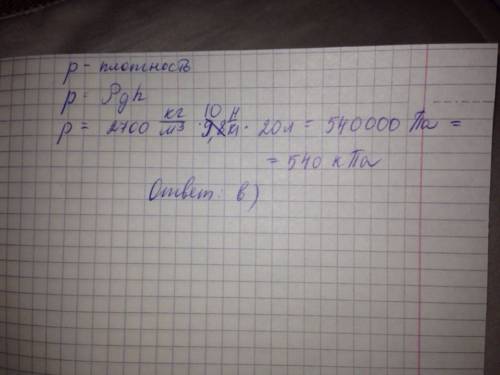 p - плотность
p = ρgh
p = 2700 кг/м³ · 9,8 10 Н/кг · 20м = 540000 Па =
= 540 кПа
Ответ: в)